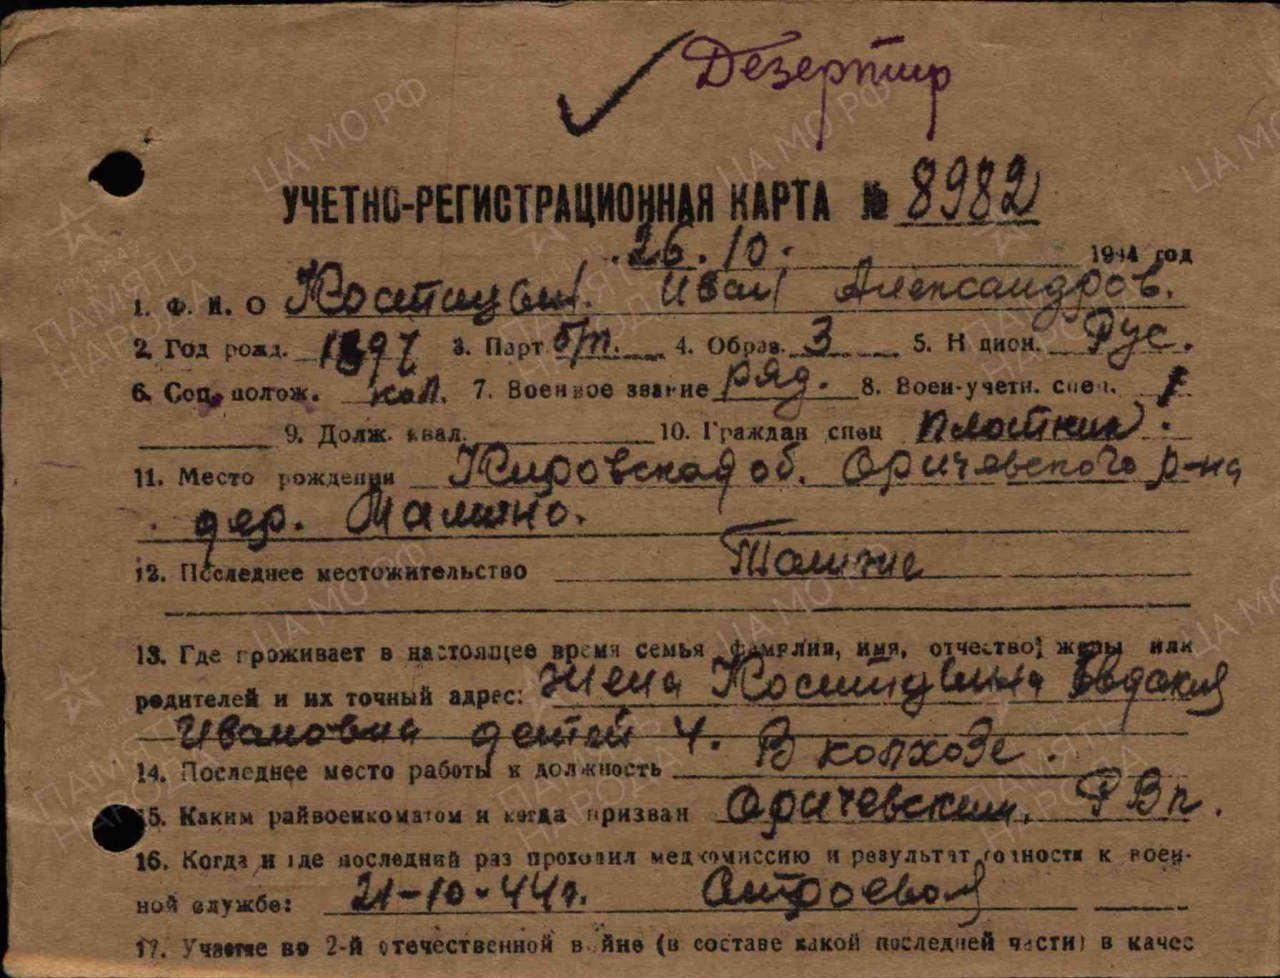 Дезертир
УЧЕТНО-РЕГИСТРАЦИОННАЯ КАРТА № 8982
26.10. 1944 год
1. Ф. И. О Костицын. Иван Александров.
2. Год рожд. 1897 3. Парт. б/п. 4. Образ. 3 5. Н цион. Рус.
6. Соц. полож. кол. 7. Военное звание ряд. 8. Воен-учетн. спец. 1
9. Долж. квал. 10. Граждан спец плотник.
11. Место рождения Кировская об. Оричевского р-на
дер.
12. Последнее местожительство
13. Где проживает в настоящее время семья фамилия, имя, отчество; жены или
родителей и их точный адрес: Жена Костицына Евдокия
Ивановна детей 4.
14. Последнее место работы к должность В колхозе.
15. Каким райвоенкоматом и когда призван Оричевским. РВк.
16. Когда и где последний раз проходил медкомиссию и результат годности к воен-
ной службе: 21-10-44г. Строевой
17. Участие во 2-й отечественной войне (в составе какой последней части) в качес
ЦА МО РФ
ПАМЯТЬ НАРОДА